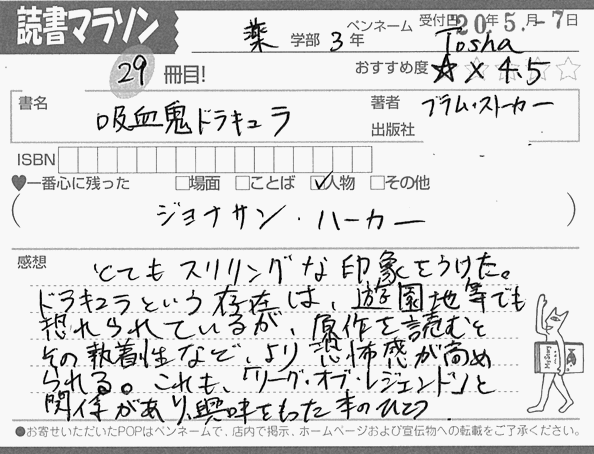 読書マラソン
薬 学部 3 年 ペンネーム Tosha 受付日 20年5月-7日
29 冊目! おすすめ度 ☆×4.5 ☆☆
書名 吸血鬼ドラキュラ 著者 ブラム・ストーカー
出版社
ISBN
♥一番心に残った □場面 □ことば ☑人物 □その他
( ジョナサン・ハーカー )
感想 とてもスリリングな印象をうけた。
ドラキュラという存在は、遊園地等でも
恐れられているが、原作を読むと
その執着性など、より恐怖感が高め
られる。これも、「リーグ・オブ・レジェンド」と
関係があり、興味をもった本のひとつ
●お寄せいただいたPOPはペンネームで、店内で掲示、ホームページおよび宣伝物への転載をご了承ください。